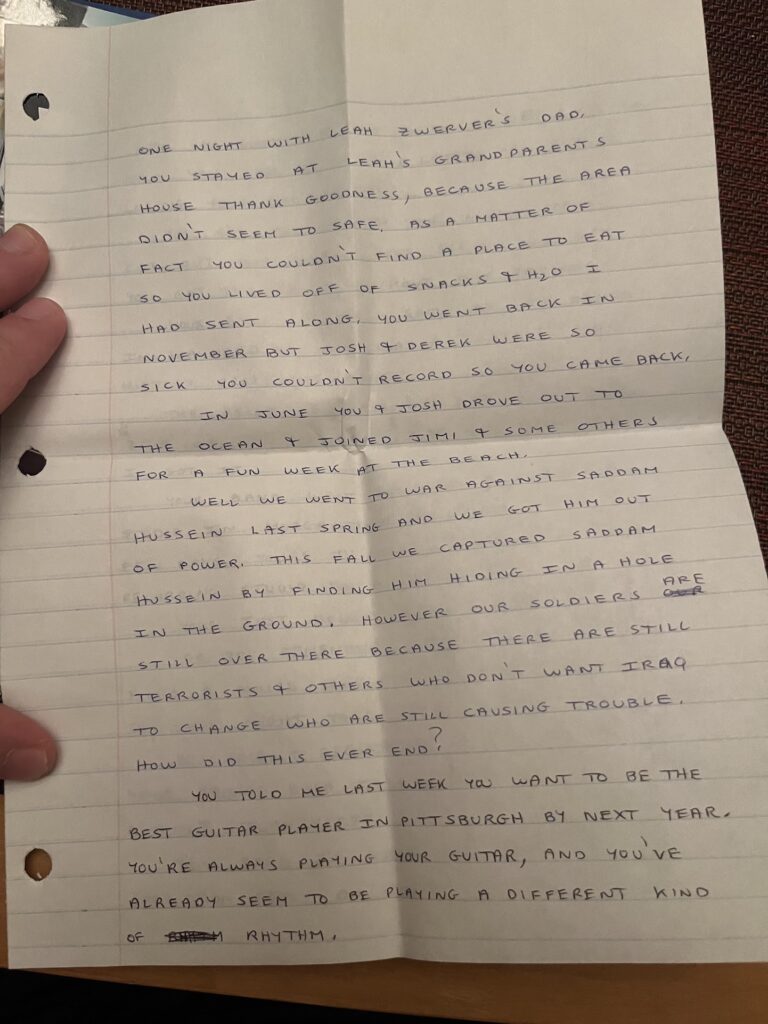 ONE NIGHT WITH LEAH ZWERVER'S DAD.
YOU STAYED AT LEAH'S GRANDPARENTS
HOUSE THANK GOODNESS, BECAUSE THE AREA
DIDN'T SEEM TO SAFE. AS A MATTER OF
FACT YOU COULDN'T FIND A PLACE TO EAT
SO YOU LIVED OFF OF SNACKS & H2O I
HAD SENT ALONG. YOU WENT BACK IN
NOVEMBER BUT JOSH & DEREK WERE SO
SICK YOU COULDN'T RECORD SO YOU CAME BACK.
IN JUNE YOU & JOSH DROVE OUT TO
THE OCEAN & JOINED JIMI & SOME OTHERS
FOR A FUN WEEK AT THE BEACH.
WELL WE WENT TO WAR AGAINST SADDAM
HUSSEIN LAST SPRING AND WE GOT HIM OUT
OF POWER. THIS FALL WE CAPTURED SADDAM
HUSSEIN BY FINDING HIM HIDING IN A HOLE
IN THE GROUND. HOWEVER OUR SOLDIERS ARE
STILL OVER THERE BECAUSE THERE ARE STILL
TERRORISTS & OTHERS WHO DON'T WANT IRAQ
TO CHANGE WHO ARE STILL CAUSING TROUBLE.
HOW DID THIS EVER END?
YOU TOLD ME LAST WEEK YOU WANT TO BE THE
BEST GUITAR PLAYER IN PITTSBURGH BY NEXT YEAR.
YOU'RE ALWAYS PLAYING YOUR GUITAR, AND YOU'VE
ALREADY SEEM TO BE PLAYING A DIFFERENT KIND
OF RHYTHM.